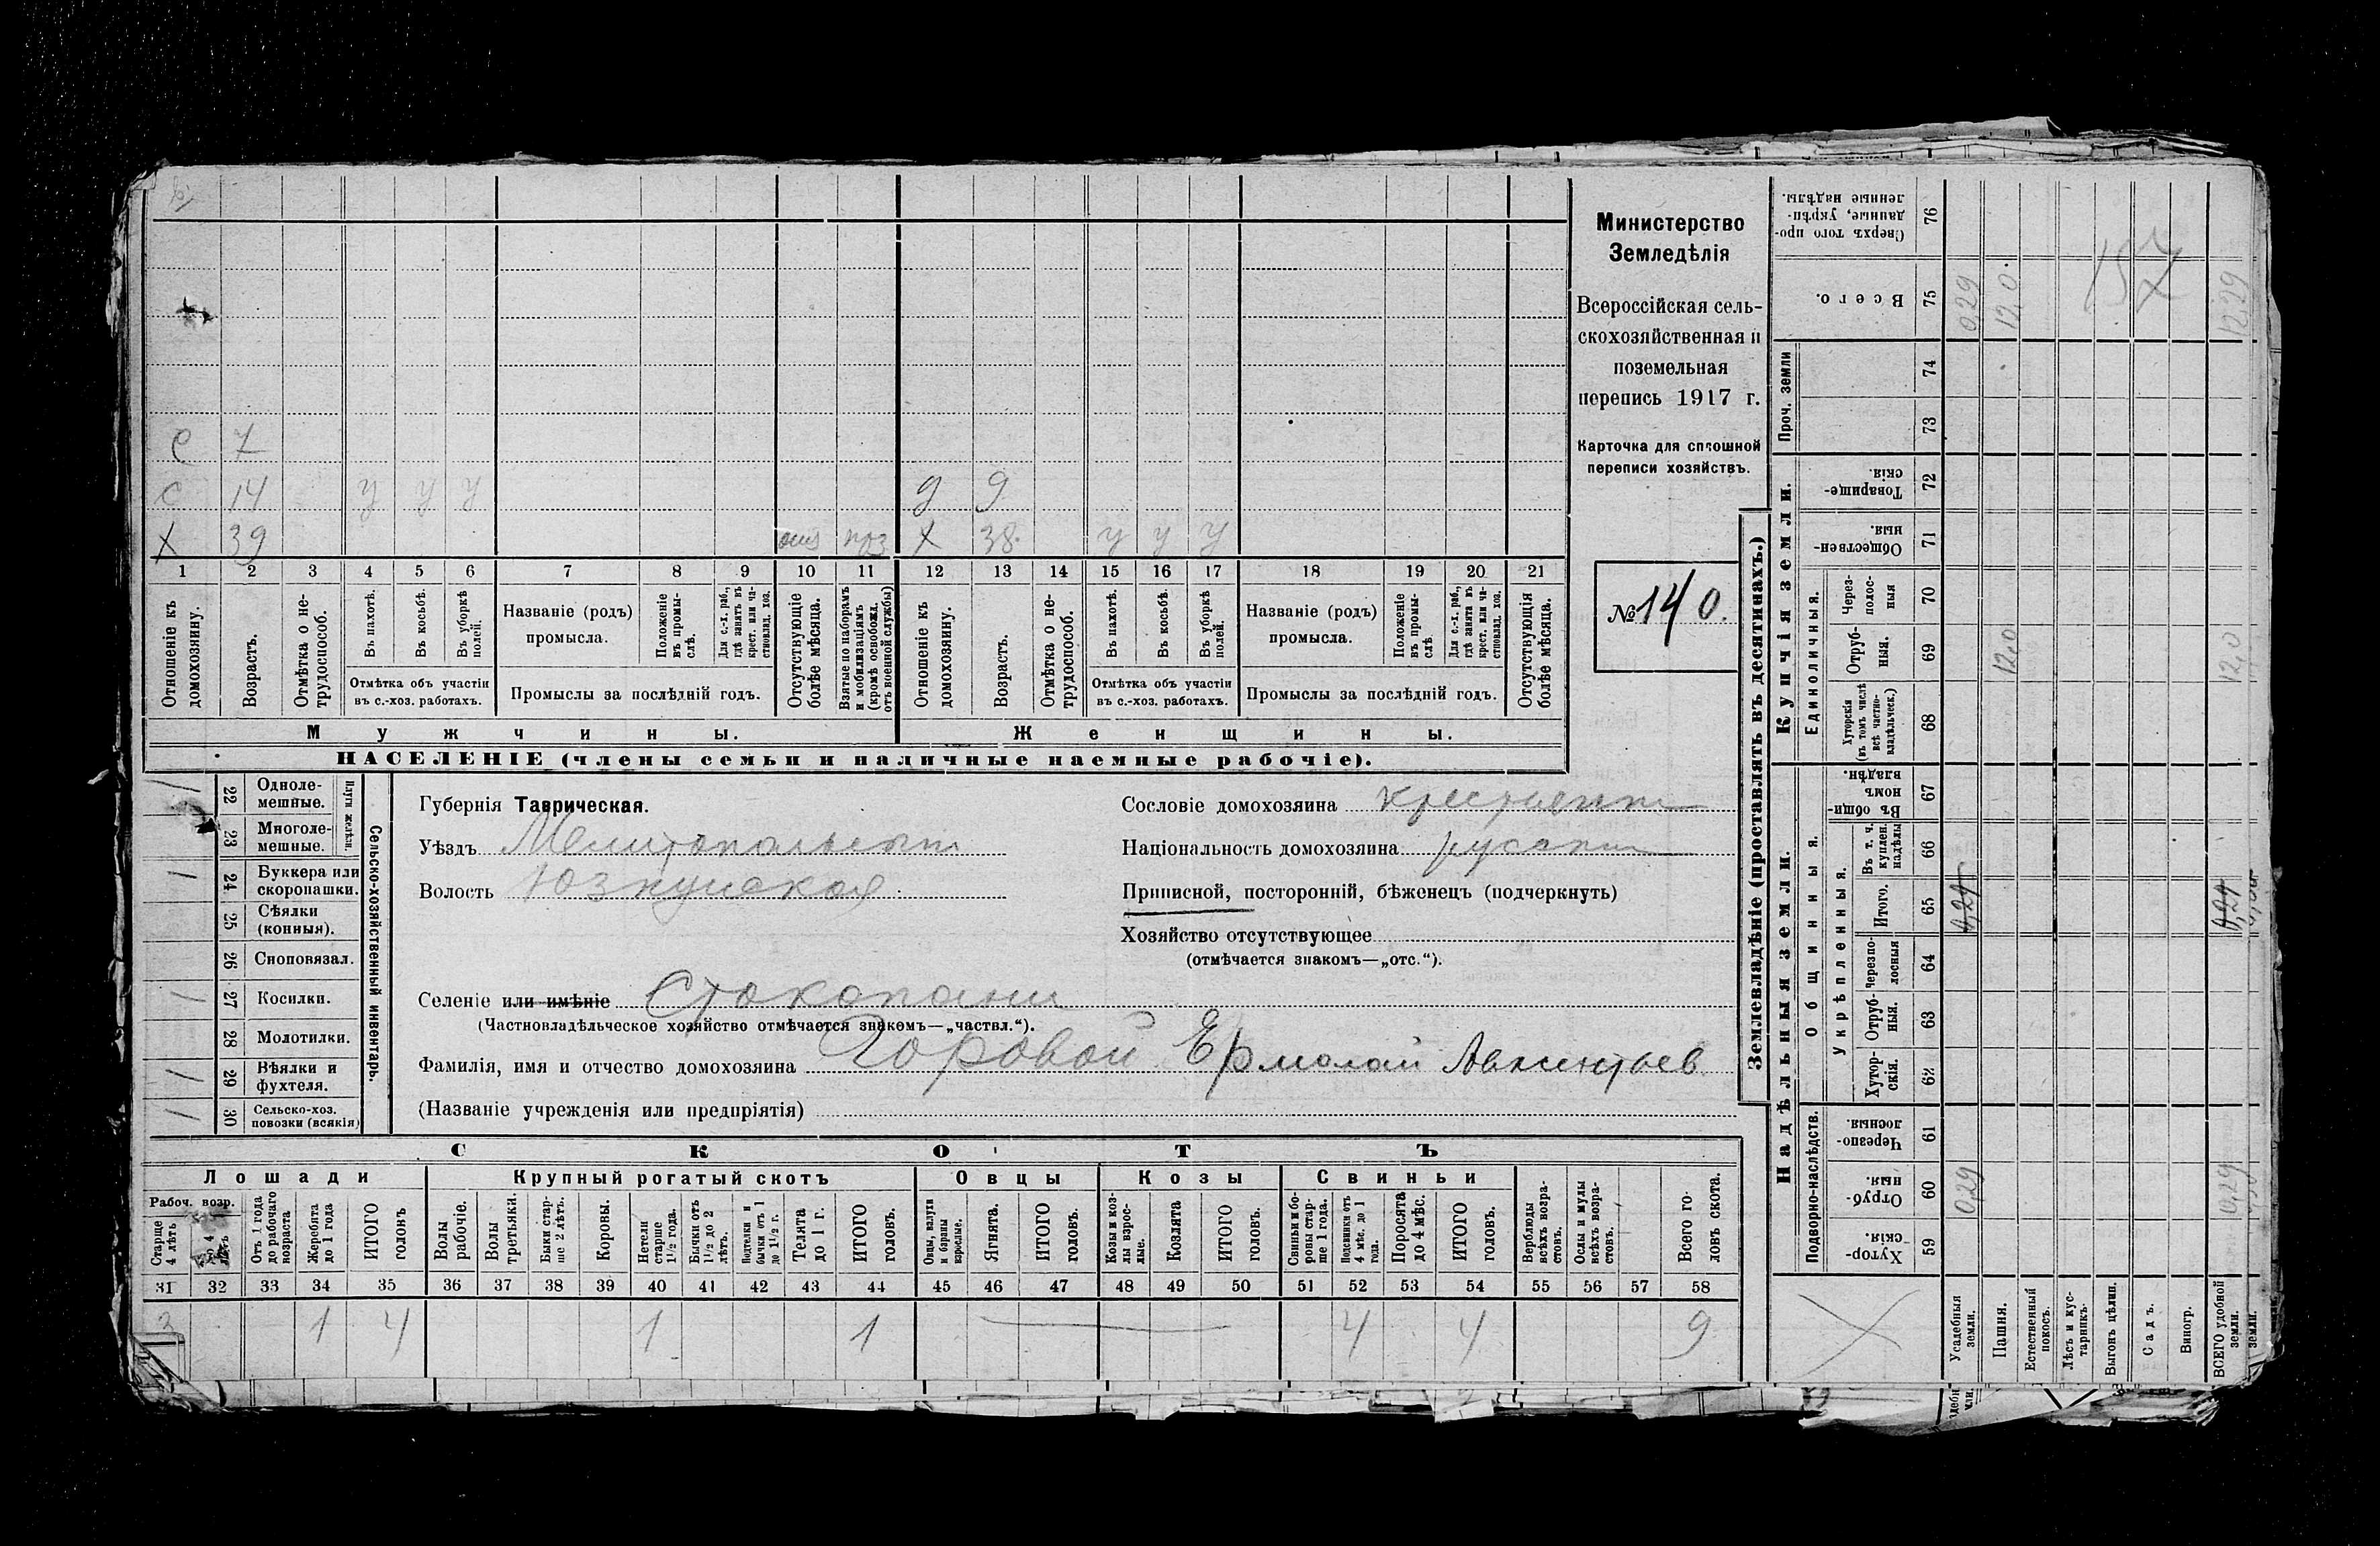 Министерство
Земледѣлія
Всероссійская сель-
скохозяйственная и
поземельная
перепись 1917 г.
Карточка для сплошной
переписи хозяйствъ.
№ 140.
С 7
С 14 у у у д 9
Х 39 Х 38 у у у
1 2 3 4 5 6 7 8 9 10 11 12 13 14 15 16 17 18 19 20 21
Отношеніе къ домохозяину.
Возрастъ.
Отмѣтка о не-трудоспособ.
Въ пахотѣ.
Въ косьбѣ.
Въ уборкѣ полей.
Отмѣтка объ участіи въ с.-хоз. работахъ.
Названіе (родъ) промысла.
Положеніе въ промы-слѣ.
Для с.-х. раб., гдѣ занятъ въ крест. или ча-стновлад. хоз.
Промыслы за послѣдній годъ.
Отсутствующіе болѣе мѣсяца.
Взятые по наборамъ и мобилизаціямъ (кромѣ освобожд. отъ военной службы)
Отношеніе къ домохозяину.
Возрастъ.
Отмѣтка о не-трудоспособ.
Въ пахотѣ.
Въ косьбѣ.
Въ уборкѣ полей.
Отмѣтка объ участіи въ с.-хоз. работахъ.
Названіе (родъ) промысла.
Положеніе въ промы-слѣ
Для с.-х. раб., гдѣ занята въ крест. или ча-стновлад. хоз.
Промыслы за послѣдній годъ.
Отсутствующія болѣе мѣсяца.
Мужчины. Женщины.
НАСЕЛЕНІЕ (члены семьи и наличные наемные рабочіе).
Сельско-хозяйственный инвентарь.
Плуги желѣзн.
1 22 Одноле-мешные.
23 Многоле-мешные.
1 24 Буккера или скоропашки.
25 Сѣялки (конныя).
26 Сноповязал.
1 27 Косилки.
28 Молотилки.
1 29 Вѣялки и фухтеля.
1 30 Сельско-хоз. повозки (всякія)
Губернія Таврическая.
Уѣздъ Мелитопольскій
Волость Юзкуйская
Сословіе домохозяина крестьянин
Національность домохозяина русскій
Приписной, посторонній, бѣженецъ (подчеркнуть)
Хозяйство отсутствующее
(отмѣчается знакомъ—„отс.“).
Селеніе или имѣніе Стокопани
(Частновладѣльческое хозяйство отмѣчается знакомъ—„частвл.“).
Фамилія, имя и отчество домохозяина Горовой Ермолай Авксентьев
(Названіе учрежденія или предпріятія)
СКОТЪ
Лошади Крупный рогатый скотъ Овцы Козы Свиньи
Рабоч. возр.
Старше 4 лѣтъ
Отъ 1 года до рабочаго возраста
Жеребята до 1 года
ИТОГО головъ
Волы рабочіе.
Волы третьяки.
Быки стар-ше 2 лѣтъ.
Коровы.
Нетели старше 1½ года.
Бычки отъ 1½ до 2 лѣтъ.
Подтелки и бычки отъ 1 до 1½ г.
Телята до 1 г.
ИТОГО головъ.
Овцы, валухи и бараны взрослые.
Ягнята.
ИТОГО головъ.
Козы и коз-лы взрос-лые.
Козлята
ИТОГО головъ.
Свиньи и бо-ровы стар-ше 1 года.
Подсвинки отъ 4 мѣс. до 1 года.
Поросята до 4 мѣс.
ИТОГО головъ.
Верблюды всѣхъ возра-стовъ.
Ослы и мулы всѣхъ возра-стовъ.
Всего го-ловъ скота.
31 32 33 34 35 36 37 38 39 40 41 42 43 44 45 46 47 48 49 50 51 52 53 54 55 56 57 58
3 1 4 1 1 4 4 9
Землевладѣніе (проставлять въ десятинахъ.)
Надѣльныя земли. Купчія земли. Проч. земли
Подворно-наслѣдств.
Общинныя.
Укрѣпленныя.
Единоличныя.
Сверхъ того про-данные, укрѣп-ленные надѣлы. 76
Всего. 75 0,29 12,0. 157 12,29
74
73
Товарище-скія. 72
Обществен-ныя. 71
Через-полос-ныя 70
Отруб-ныя. 69 12,0 12,0
Хуторскія (въ томъ числѣ всѣ частно-владѣльческ.) 68
Въ общи-номъ владѣн. 67
Въ т. ч. куплен. надѣлы 66
Итого. 65 0,29 0,29
Черезпо-лосныя 64
Отруб-ныя. 63
Хутор-скія. 62
Черезпо-лосныя. 61
Отруб-ныя. 60 0,29 0,29
Хутор-скія. 59
Усадебныя земли.
Пашня.
Естественный покосъ.
Лѣсъ и кус-тарникъ.
Выгонъ цѣлин.
Садъ.
Виногр.
ВСЕГО удобной земли.